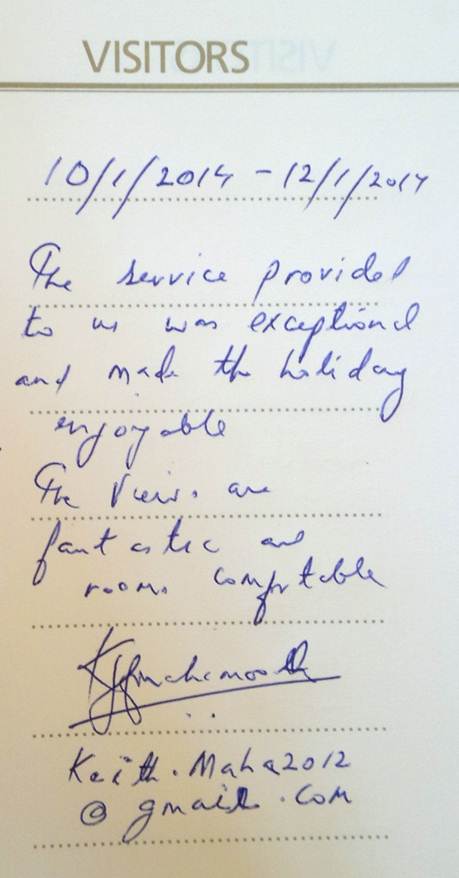 VISITORS
10/1/2014 - 12/1/2014
The service provided
to us was exceptional
and made the holiday
enjoyable
The views are
fantastic and
rooms comfortable
Keith.Maha2012
@gmail.com